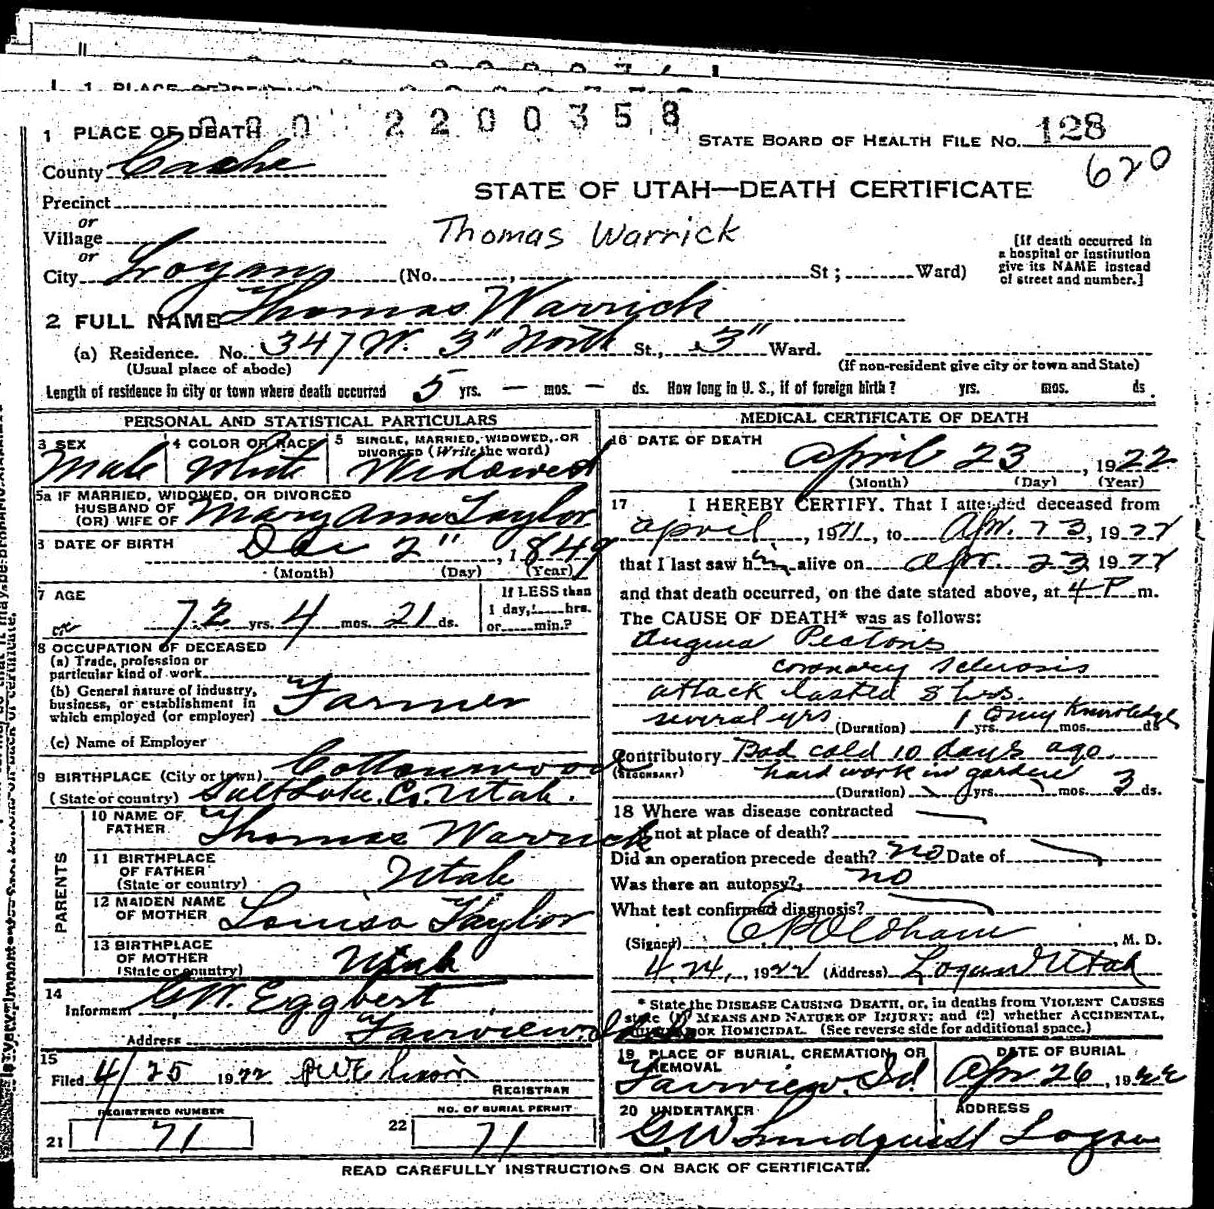 2200358
1 PLACE OF DEATH
STATE BOARD OF HEALTH FILE No. 128
County Cache
620
STATE OF UTAH—DEATH CERTIFICATE
Precinct
or
Village
Thomas Warrick
[If death occurred in a hospital or institution give its NAME instead of street and number.]
or
City Logan (No. , St ; Ward)
2 FULL NAME Thomas Warrick
(a) Residence. No. 347 W. 3" North St., 3" Ward.
(Usual place of abode) (If non-resident give city or town and State)
Length of residence in city or town where death occurred 5 yrs. — mos. — ds. How long in U. S., if of foreign birth? yrs. mos. ds.
PERSONAL AND STATISTICAL PARTICULARS
3 SEX Male
4 COLOR OR RACE White
5 SINGLE, MARRIED, WIDOWED, OR DIVORCED (Write the word) Widowed
5a IF MARRIED, WIDOWED, OR DIVORCED
HUSBAND OF
(OR) WIFE OF Mary Ann Taylor
6 DATE OF BIRTH Dec 2", 1849
(Month) (Day) (Year)
7 AGE 72 yrs. 4 mos. 21 ds.
If LESS than 1 day, hrs. or min.?
8 OCCUPATION OF DECEASED
(a) Trade, profession or particular kind of work
(b) General nature of industry, business, or establishment in which employed (or employer) Farmer
(c) Name of Employer
9 BIRTHPLACE (City or town) Cottonwood
(State or country) Salt Lake Co. Utah.
PARENTS
10 NAME OF FATHER Thomas Warrick
11 BIRTHPLACE OF FATHER (State or country) Utah
12 MAIDEN NAME OF MOTHER Louisa Taylor
13 BIRTHPLACE OF MOTHER (State or country) Utah
14 Informant G.W. Eggbert
Address Fairview, Idaho
15 Filed 4/25 1922
REGISTRAR
REGISTERED NUMBER
21 71
NO. OF BURIAL PERMIT
22 71
MEDICAL CERTIFICATE OF DEATH
16 DATE OF DEATH
April 23, 1922
(Month) (Day) (Year)
17 I HEREBY CERTIFY, That I attended deceased from
April , 19 , to Apr. 23, 1922
that I last saw him alive on Apr. 23 1922
and that death occurred, on the date stated above, at 4 P m.
The CAUSE OF DEATH* was as follows:
Angina Pectoris
coronary sclerosis
attack lasted 8 hrs.
several yrs (Duration) 1 yrs. my knowledge mos. ds
Contributory Bad cold 10 days ago.
(SECONDARY) hard work in garden
(Duration) yrs. mos. 3 ds.
18 Where was disease contracted
if not at place of death?
Did an operation precede death? no Date of
Was there an autopsy? no
What test confirmed diagnosis?
(Signed) Oldham, M. D.
4 24, 1922 (Address) Logan Utah
* State the DISEASE CAUSING DEATH, or, in deaths from VIOLENT CAUSES
state (1) MEANS AND NATURE OF INJURY; and (2) whether ACCIDENTAL,
SUICIDAL OR HOMICIDAL. (See reverse side for additional space.)
19 PLACE OF BURIAL, CREMATION, OR REMOVAL Fairview, Id
DATE OF BURIAL Apr 26, 1922
20 UNDERTAKER G W Lindquist
ADDRESS Logan
READ CAREFULLY INSTRUCTIONS ON BACK OF CERTIFICATE.